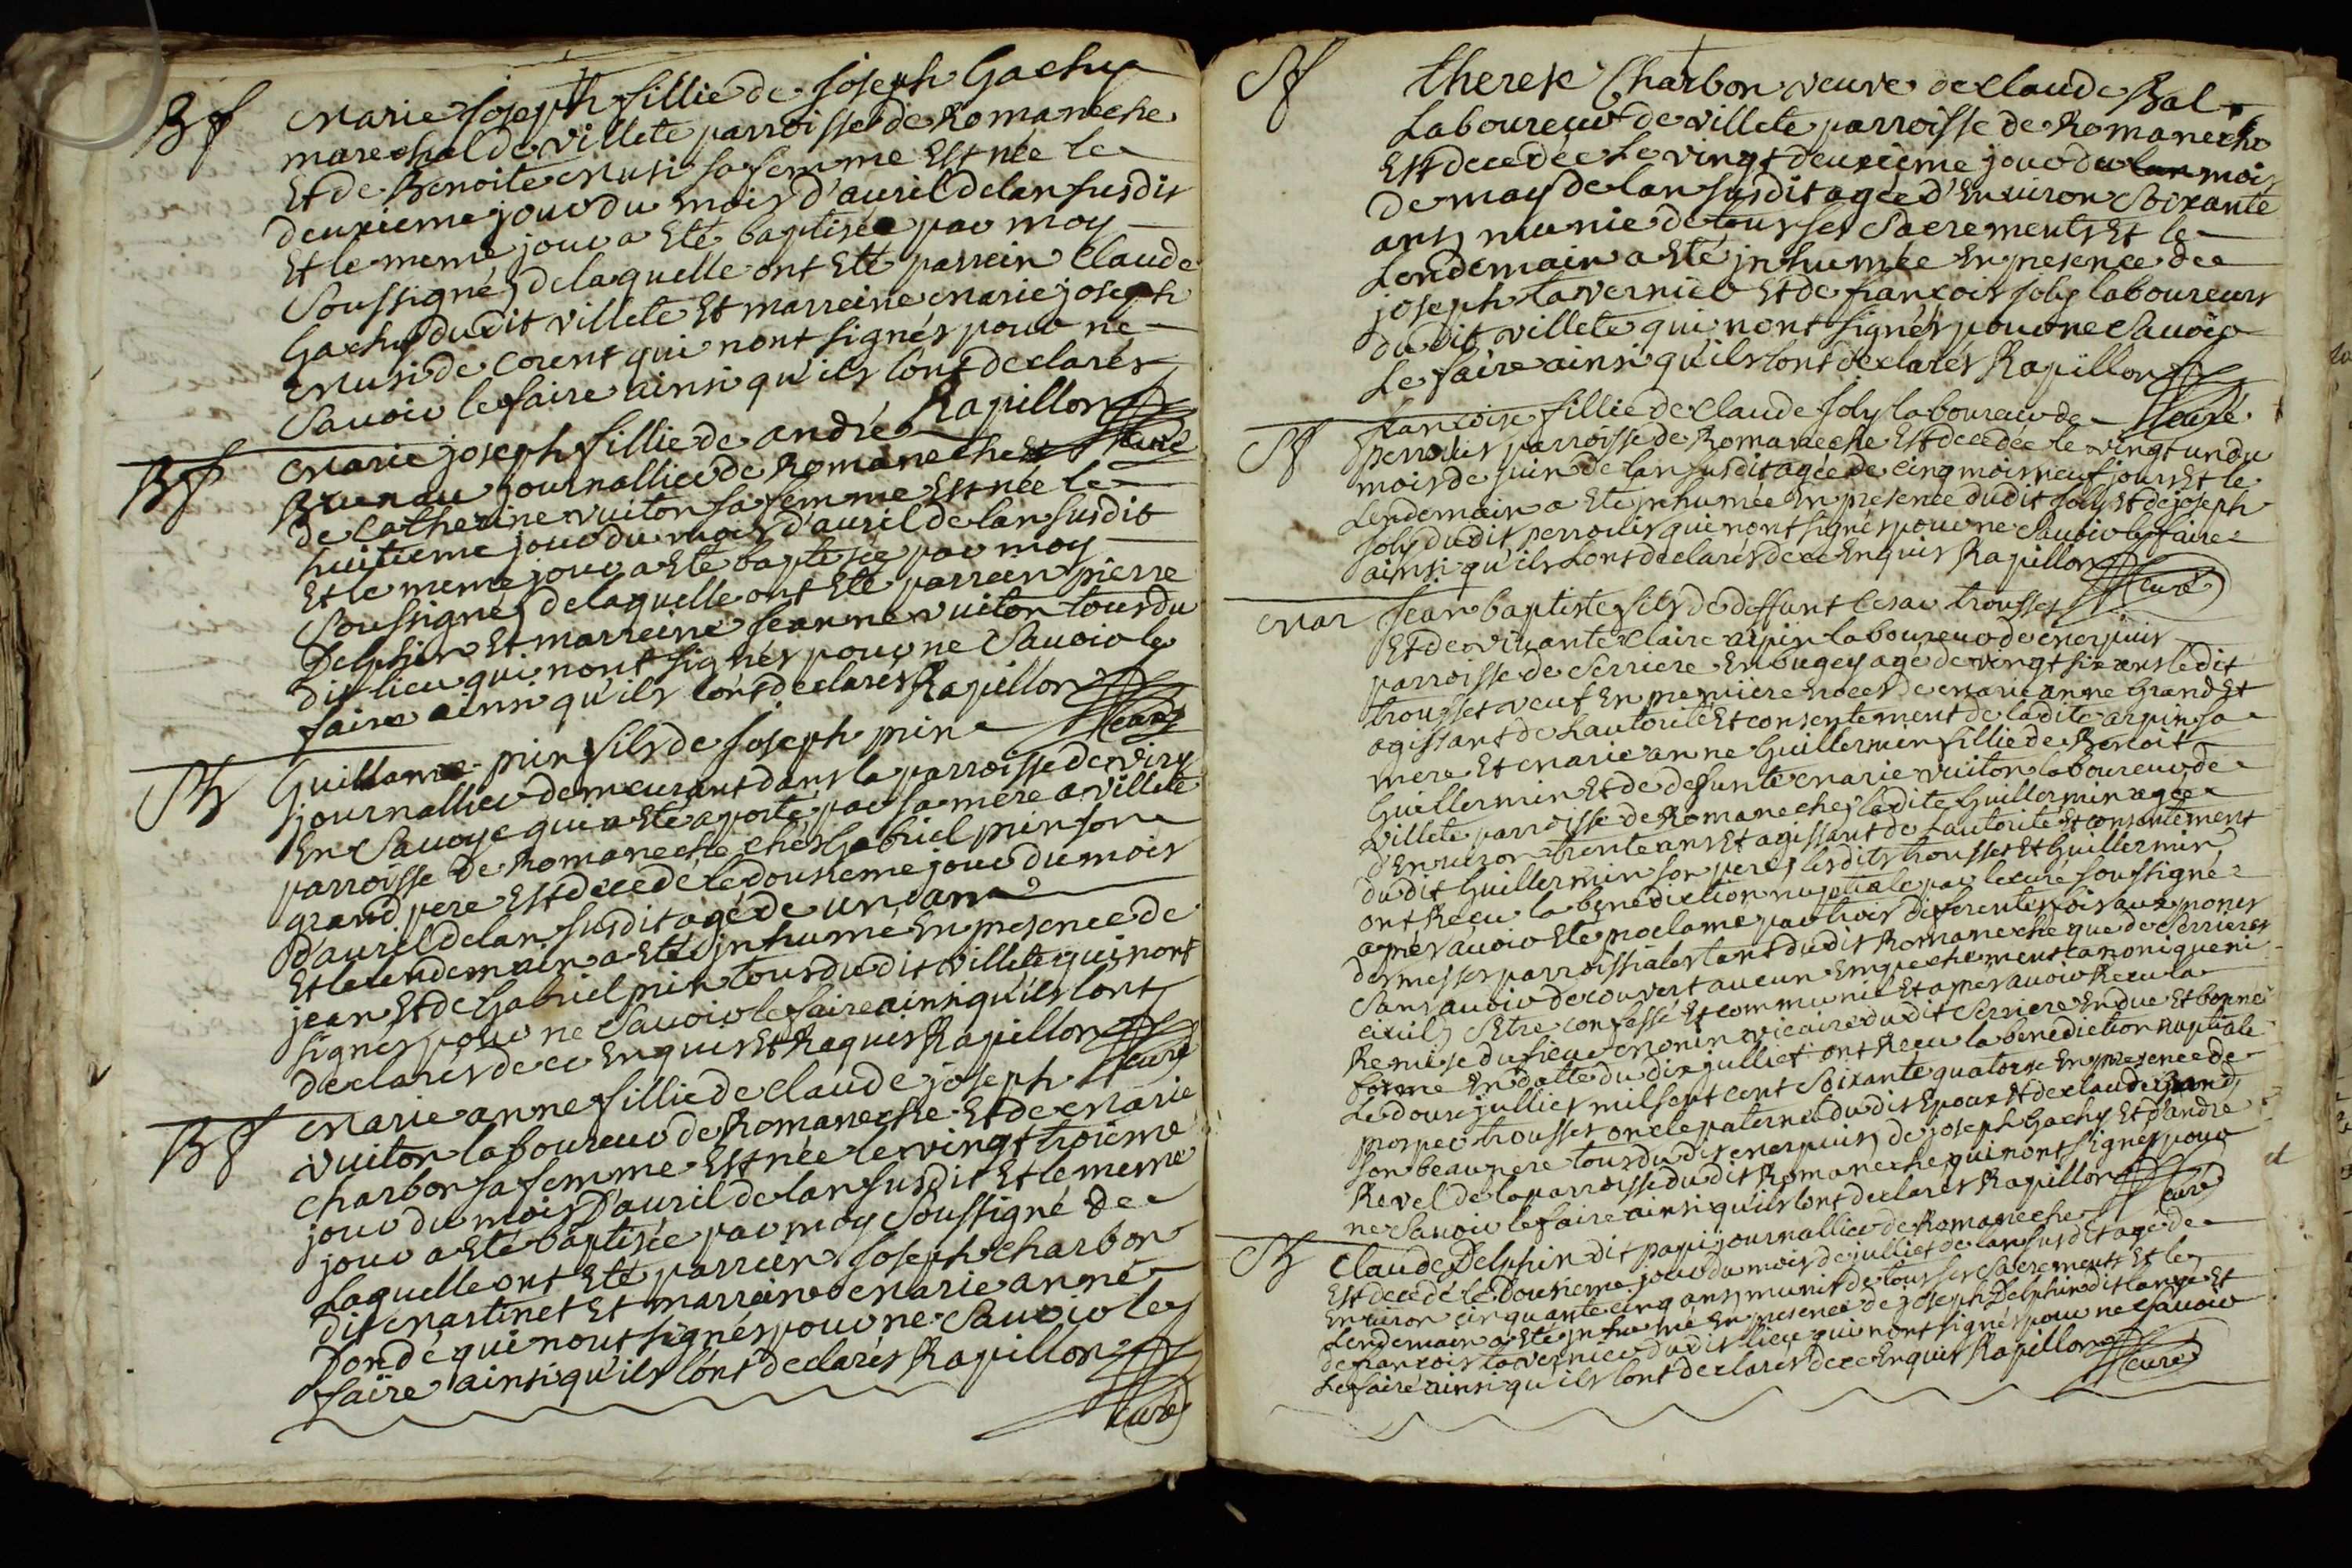 Bf
Marie Joseph fillie de Joseph Gachy
marechal de villete parroisse de Romaneche
Et de Benoite Musi sa femme Est née le
deuxieme jour du mois d'auril de lan susdit
Et le meme jour a Eté baptisée par moy
Soussigné, de laquelle ont Eté parrein Claude
Gachy dudit villete Et marreine Marie joseph
Musi de Corent qui nont signés pour ne
Sauoir le faire ainsi qu'ils lont declarés
Rapillon curé
Bf
Marie joseph fillie de andré
Brunau journallier de Romaneche Et
de Catherine vuiton sa femme Est née le
huitieme jour du mois d'auril de lan susdit
Et le meme jour a Eté baptisée par moy
Soussigné, de laquelle ont Eté parrein pierre
Delphin Et marreine Jeanne vuiton tous du
dit lieu qui nont signés pour ne Sauoir le
faire ainsi qu'ils lont declarés Rapillon
curé
Sh
Guillaume pin fils de Joseph pin
journallier demeurant dans la parroisse de viry
En Sauoye qui a Eté aporté par sa mere a villete
parroisse de Romaneche chés Gabriel pin son
grand pere Est decedé le douxieme jour du mois
d'auril de lan susdit agé de un an
Et le lendemain a Eté jnhumé En presence de
jean Et de Gabriel pin tous dudit villete qui nont
signés pour ne Sauoir le faire ainsi qu'ils lont
declarés de ce Enquis Et Requis Rapillon
curé
Bf
Marie anne fillie de Claude joseph
vuiton laboureur de Romaneche Et de Marie
Charbon sa femme Est née le vingt troisieme
jour du mois d'auril de lan susdit Et le meme
jour a Eté baptisée par moy Soussigné de
laquelle ont Eté parrein Joseph Charbon
dit Martinet Et marreine Marie anne
Dondé qui nont signés pour ne Sauoir le
faire ainsi qu'ils lont declarés Rapillon
curé
Sf
therese Charbon veuve de Claude Bal
Laboureur de villete parroisse de Romaneche
Est decedée Le vingt deuxieme jour du lan mois
de may de lan susdit agée d'Enuiron Soixante
ans, munie de tous ses Sacrements Et le
Lendemain a Eté jnhumée En presence de
joseph tavernier Et de francois Joly laboureurs
dudit villete qui nont signés pour ne Sauoir
Le faire ainsi qu'ils lont declarés Rapillon
curé
Sf
francoise fillie de Claude Joly laboureur de
perrouis parroisse de Romaneche Est decedée le vingt un du
mois de juin de lan susdit agée de cinq mois neuf jours Et le
Lendemain a Eté jnhumée En presence dudit Joly Et de joseph
Joly dudit perrouis qui nont signés pour ne Sauoir le faire
ainsi qu'ils Lont declarés de ce Enquis Rapillon
curé
Mar
Jean baptiste fils de deffunt Cesar trousset
Et de viuante Claire arpin laboureur de merpuis
parroisse de Serriere En bugey agé de vingt six ans ledit
trousset veuf En premiere noces de Marie anne Grand Et
agissant de Lautorité Et consentement de ladite arpin sa
mere Et Marie anne Guillermin fillie de Benoit
Guillermin Et de defunte Marie vuiton laboureur de
villete parroisse de Romaneche, ladite Guillermin agée
d'Enuiron trente ans Et agissant de Lautorité Et consentement
dudit Guillermin son pere, lesdits trousset Et Guillermin
ont Recu la benediction nuptiale par le curé soussigné
apres auoir Eté proclamé par trois diferentes fois aux prones
des messes parroissiales tant dudit Romaneche que de Serrieres
Sans auoir decouvert aucun Empechement canonique ni
ciuil, S'etre confessé Et communié Et apres auoir Recu la
Remise du Sieur Monin vicaire dudit Serriere En due Et bonne
forme En datte du dix julliet ont Recu la benediction nuptiale
Le douxe julliet mil sept cent Soixante quatorze En presence de
prosper trousset oncle paternel dudit Epoux Et de claude Grand,
Son beau pere tous dudit merpuis, de joseph Gachy Et d'andre
Revel de la parroisse dudit Romaneche qui nont signés pour
ne Sauoir le faire ainsi qu'ils lont declarés Rapillon
curé
Sh
Claude Delphin dit papi journallier de Romaneche
Est decedé le Douxieme jour du mois de julliet de lan susdit agé de
Enuiron cinquante cinq ans, munis de tous ses Sacrements Et le
Lendemain a Eté jnhumé En presence de joseph Delphin dit Et
de francois tavernier dudit lieu qui nont signés pour ne Sauoir
Le faire ainsi qu'ils lont declarés de ce Enquis Rapillon
curé